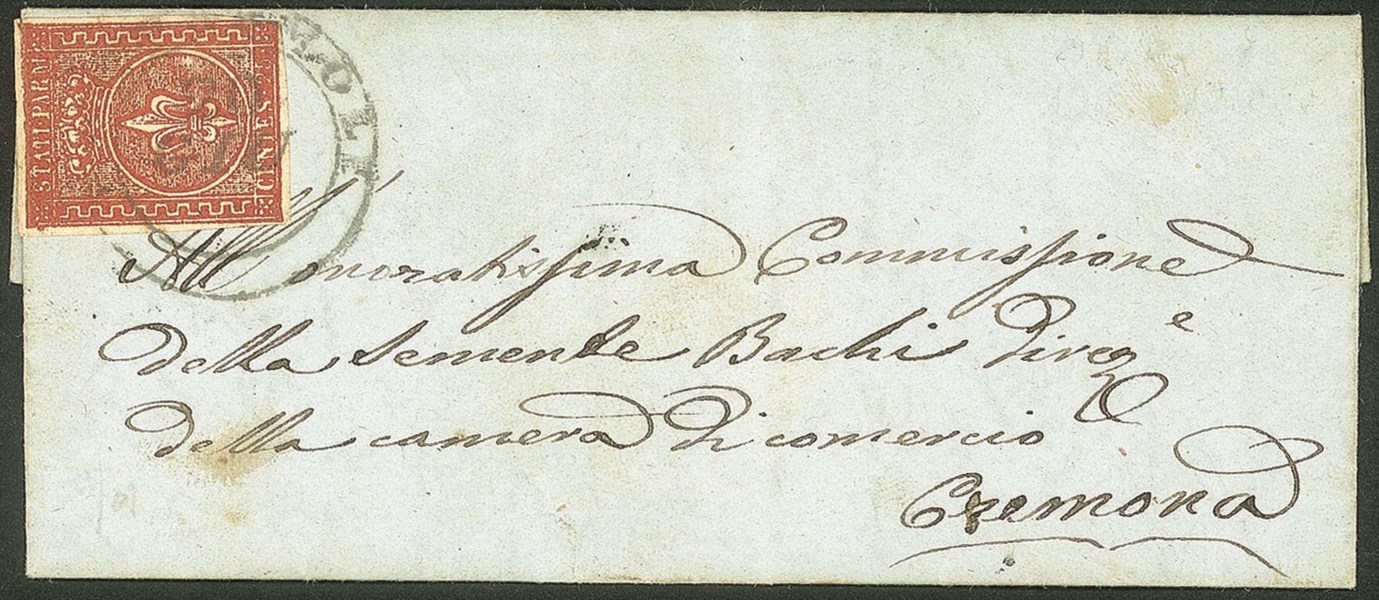 STATI PARM
All' onoratissima Commissione
della Semente Bachi Direz e
della camera di comercio
Cremona